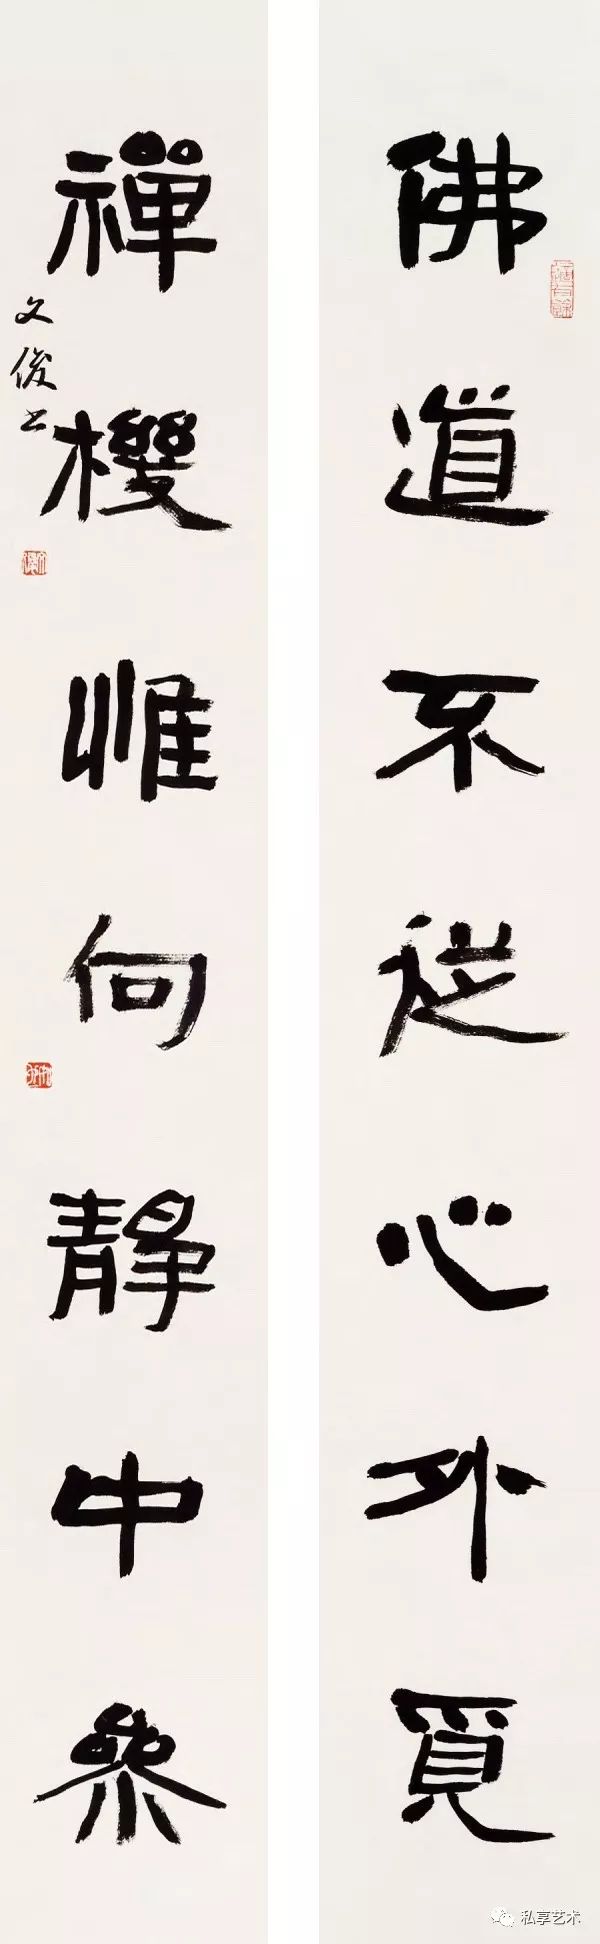 佛道不從心外覓
禪機惟向靜中參
文俊书
私享艺术